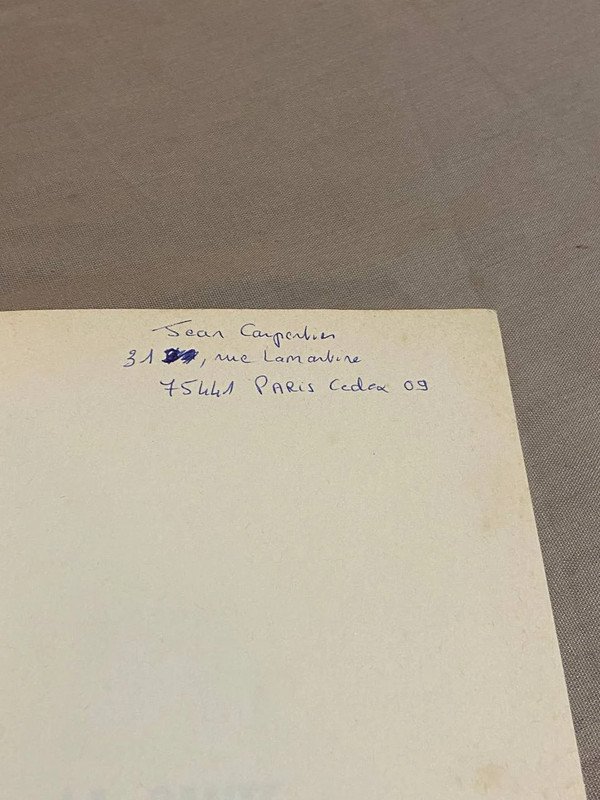 Jean Carpentier
31, rue Lamartine
75441 PARIS Cedex 09